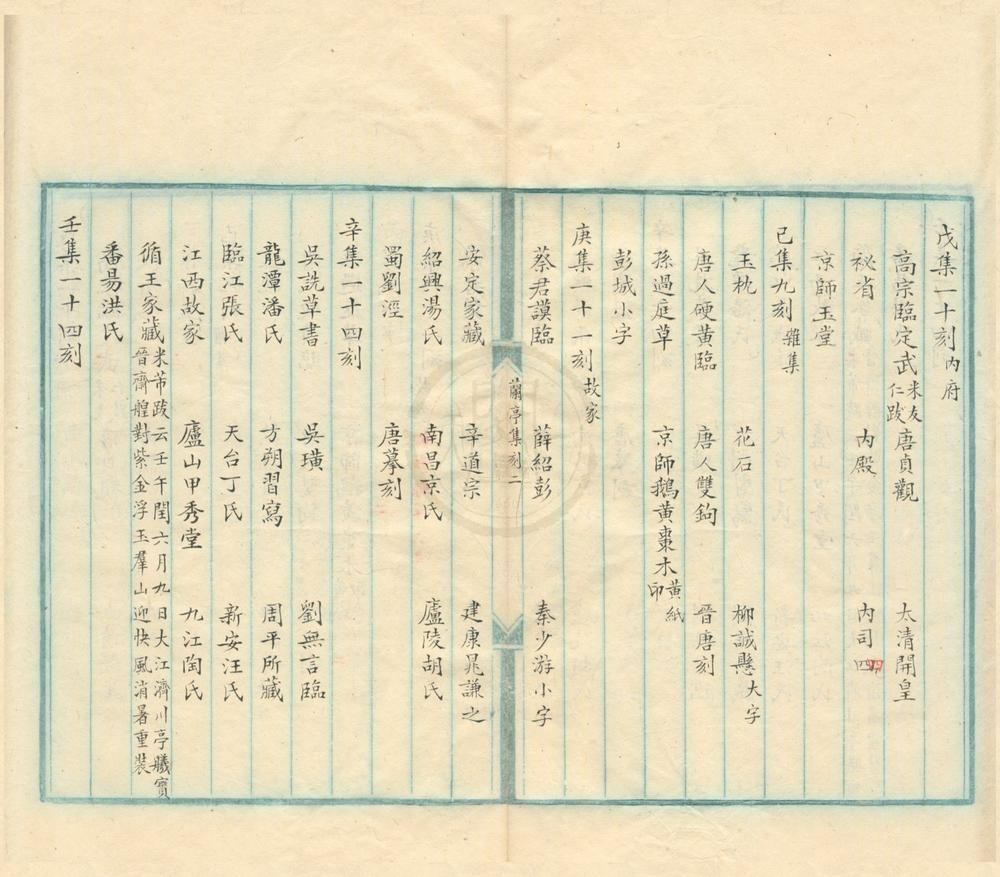 戊集一十刻內府
高宗臨定武米友仁跋 唐貞觀 太清開皇
祕省 內殿 內司四
京師玉堂
已集九刻雜集
玉枕 花石 柳誠懸大字
唐人硬黃臨 唐人雙鉤 晉唐刻
孫過庭草 京師鵝黃棗木黃紙印
彭城小字
庚集一十一刻故家
蔡君謨臨 薛紹彭 秦少游小字
蘭亭集刻二
安定家藏 辛道宗 建康晁謙之
紹興湯氏 南昌京氏 廬陵胡氏
蜀劉涇 唐摹刻
辛集一十四刻
吳說草書 吳璜 劉無言臨
龍潭潘氏 方朔習寫 周平所藏
臨江張氏 天台丁氏 新安汪氏
江西故家 廬山甲秀堂 九江陶氏
循王家藏米芾跋云壬午閏六月九日大江濟川亭艤寶晉齋艎對紫金浮玉羣山迎快風消暑重裝
番昜洪氏
壬集一十四刻